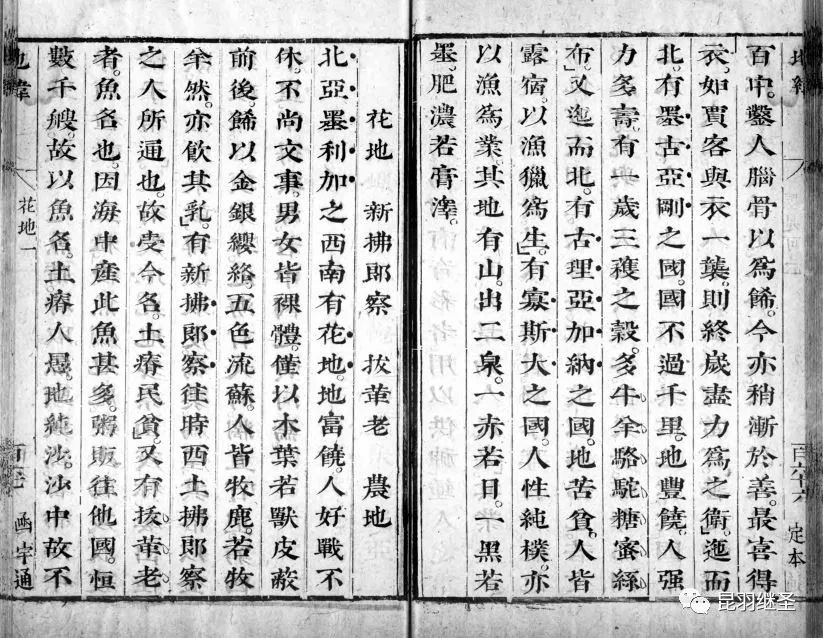 地緯 百六十六 定本
百中。鑿人腦骨以爲餙。今亦稍漸於善。最喜得
衣。如賈客與衣一襲。則終歲盡力爲之衛。迤而
北。有墨古亞剛之國。國不過千里。地豐饒。人强
力多壽。有一歲三穫之榖。多牛羊駱駝糖蜜絲
布。又迤而北。有古理亞加納之國。地苦貧。人皆
露宿。以漁獵爲生。有寡斯大之國。人性純樸。亦
以漁爲業。其地有山。出二泉。一赤若日。一黑若
墨。肥濃若膏澤。
花地 新拂郎察 拔革老 農地
北亞墨利加之西南有花地。地富饒。人好戰不
休。不尚文事。男女皆裸體。僅以木葉若獸皮蔽
前後。餙以金銀纓絡。五色流蘇。人皆牧鹿。若牧
羊然。亦飲其乳。有新拂郎察。往時西土拂郎察
之人所通也。故受今名。土瘠民貧。又有拔革老
者。魚名也。因海中產此魚甚多。粥販往他國。恒
數千艘。故以魚名。土瘠人愚。地純沙。沙中故不
地緯 花地一 函宇通
昆羽继圣